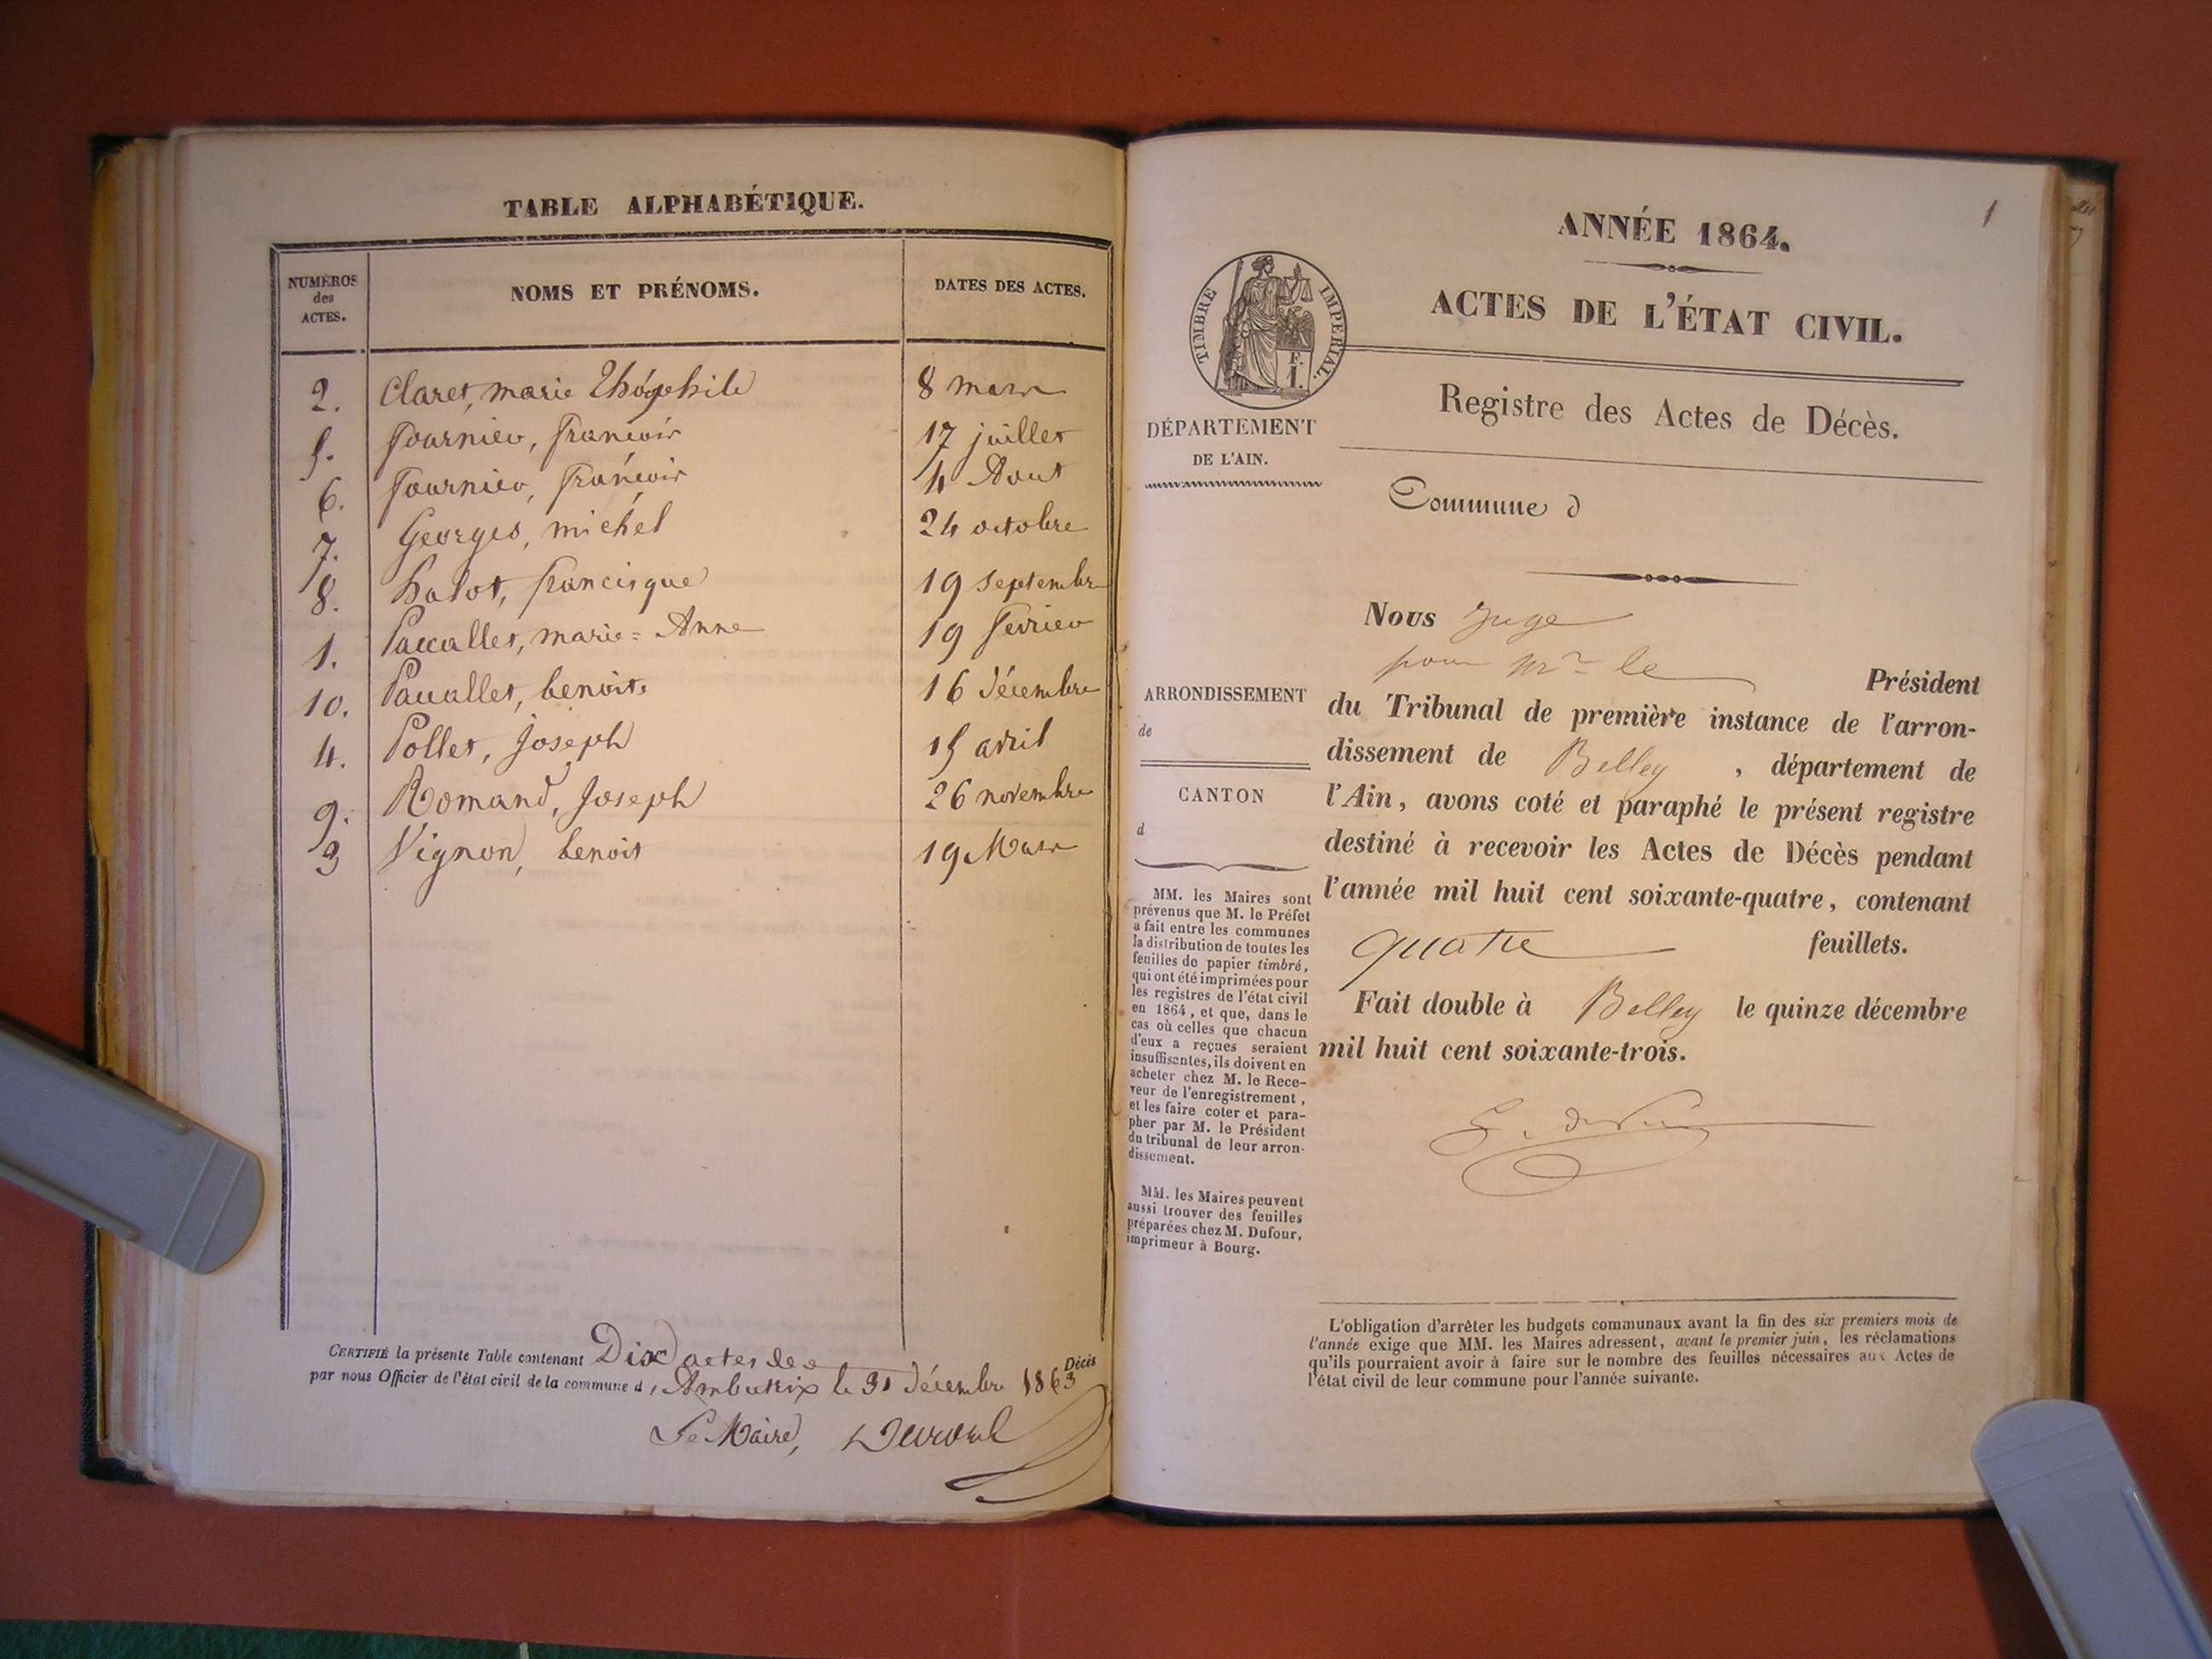 TABLE ALPHABÉTIQUE.
NUMÉROS des ACTES. NOMS ET PRÉNOMS. DATES DES ACTES.
2. Claret, marie Théophile 8 mars
5. Fournier, françois 17 juillet
6. Fournier, françois 4 Aout
7. Georges, michel 24 octobre
8. halot, francisque 19 septembre
1. Paccallet, marie=Anne 19 fevrier
10. Paccallet, benoite 16 décembre
4. Pollet, joseph 15 avril
9. Romand, joseph 26 novembre
3 Vignon, benoit 19 Mars
CERTIFIÉ la présente Table contenant Dix actes de Décès
par nous Officier de l'état civil de la commune d'Ambutrix le 31 décembre 1863
Le Maire,
1
ANNÉE 1864.
ACTES DE L'ÉTAT CIVIL.
TIMBRE IMPERIAL.
Registre des Actes de Décès.
DÉPARTEMENT
DE L'AIN.
Commune d
ARRONDISSEMENT
de
CANTON
d
MM. les Maires sont
prévenus que M. le Préfet
a fait entre les communes
la distribution de toutes les
feuilles de papier timbré,
qui ont été imprimées pour
les registres de l'état civil
en 1864, et que, dans le
cas où celles que chacun
d'eux a reçues seraient
insuffisantes, ils doivent en
acheter chez M. le Rece-
veur de l'enregistrement,
et les faire coter et para-
pher par M. le Président
du tribunal de leur arron-
dissement.
MM. les Maires peuvent
aussi trouver des feuilles
préparées chez M. Dufour,
imprimeur à Bourg.
Nous juge
pour Mr le Président
du Tribunal de première instance de l'arron-
dissement de Belley, département de
l'Ain, avons coté et paraphé le présent registre
destiné à recevoir les Actes de Décès pendant
l'année mil huit cent soixante-quatre, contenant
quatre feuillets.
Fait double à Belley le quinze décembre
mil huit cent soixante-trois.
L'obligation d'arrêter les budgets communaux avant la fin des six premiers mois de
l'année exige que MM. les Maires adressent, avant le premier juin, les réclamations
qu'ils pourraient avoir à faire sur le nombre des feuilles nécessaires aux Actes de
l'état civil de leur commune pour l'année suivante.